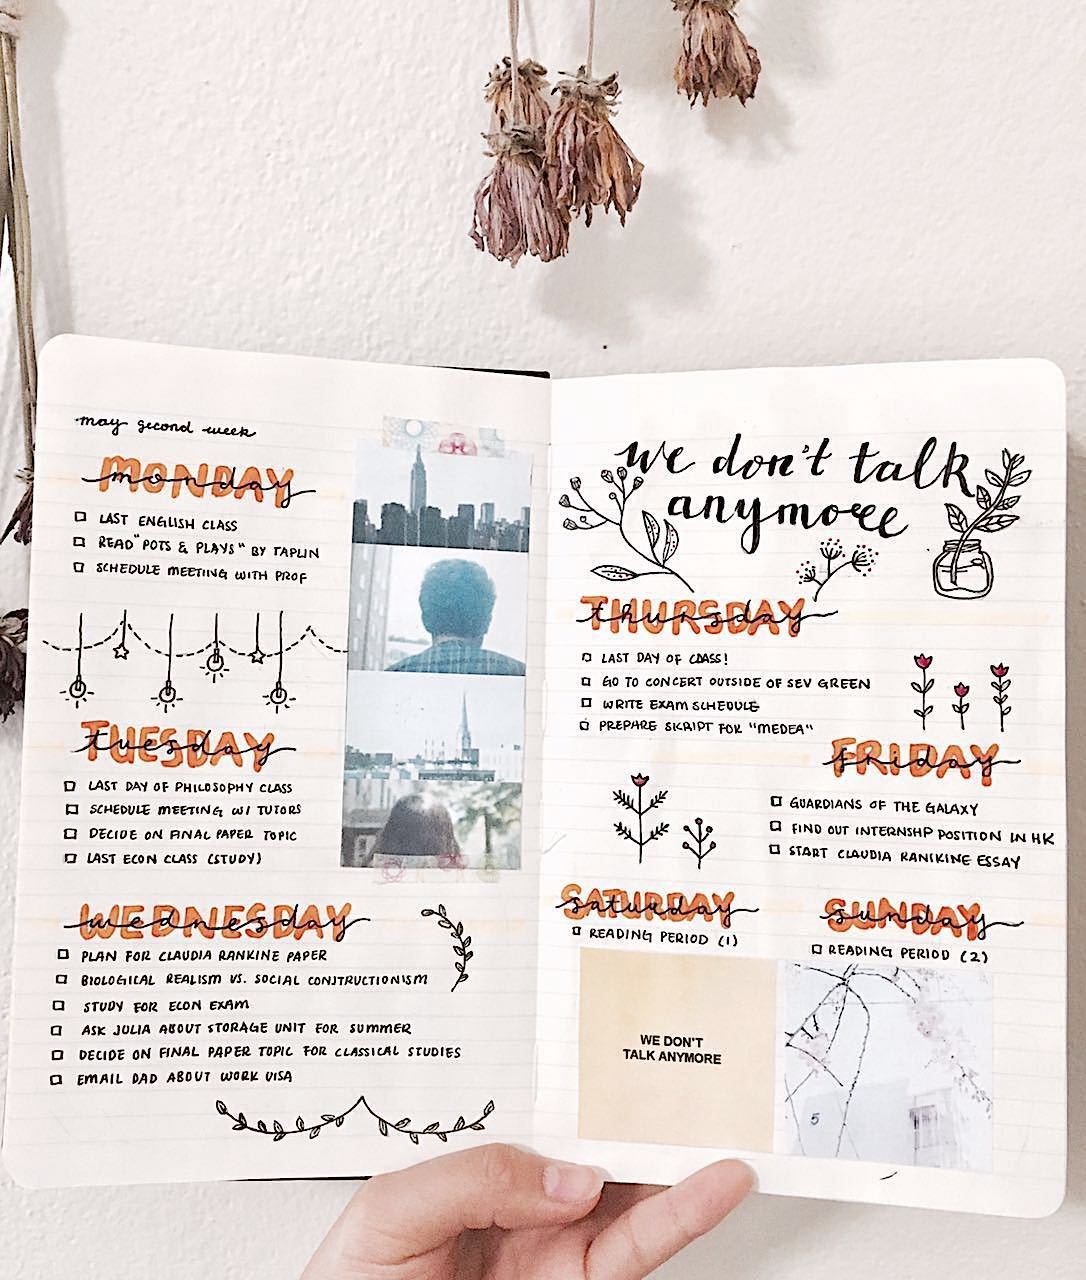 may second week
MONDAY
monday
LAST ENGLISH CLASS
READ "POTS & PLAYS" BY TAPLIN
SCHEDULE MEETING WITH PROF
TUESDAY
tuesday
LAST DAY OF PHILOSOPHY CLASS
SCHEDULE MEETING W/ TUTORS
DECIDE ON FINAL PAPER TOPIC
LAST ECON CLASS (STUDY)
WEDNESDAY
wednesday
PLAN FOR CLAUDIA RANKINE PAPER
BIOLOGICAL REALISM VS. SOCIAL CONSTRUCTIONISM
STUDY FOR ECON EXAM
ASK JULIA ABOUT STORAGE UNIT FOR SUMMER
DECIDE ON FINAL PAPER TOPIC FOR CLASSICAL STUDIES
EMAIL DAD ABOUT WORK VISA
we don't talk
anymore
THURSDAY
thursday
LAST DAY OF CLASS!
GO TO CONCERT OUTSIDE OF SEV GREEN
WRITE EXAM SCHEDULE
PREPARE SKRIPT FOR "MEDEA"
FRIDAY
friday
GUARDIANS OF THE GALAXY
FIND OUT INTERNSHP POSITION IN HK
START CLAUDIA RANIKINE ESSAY
SATURDAY
saturday
READING PERIOD (1)
SUNDAY
sunday
READING PERIOD (2)
WE DON'T
TALK ANYMORE
5